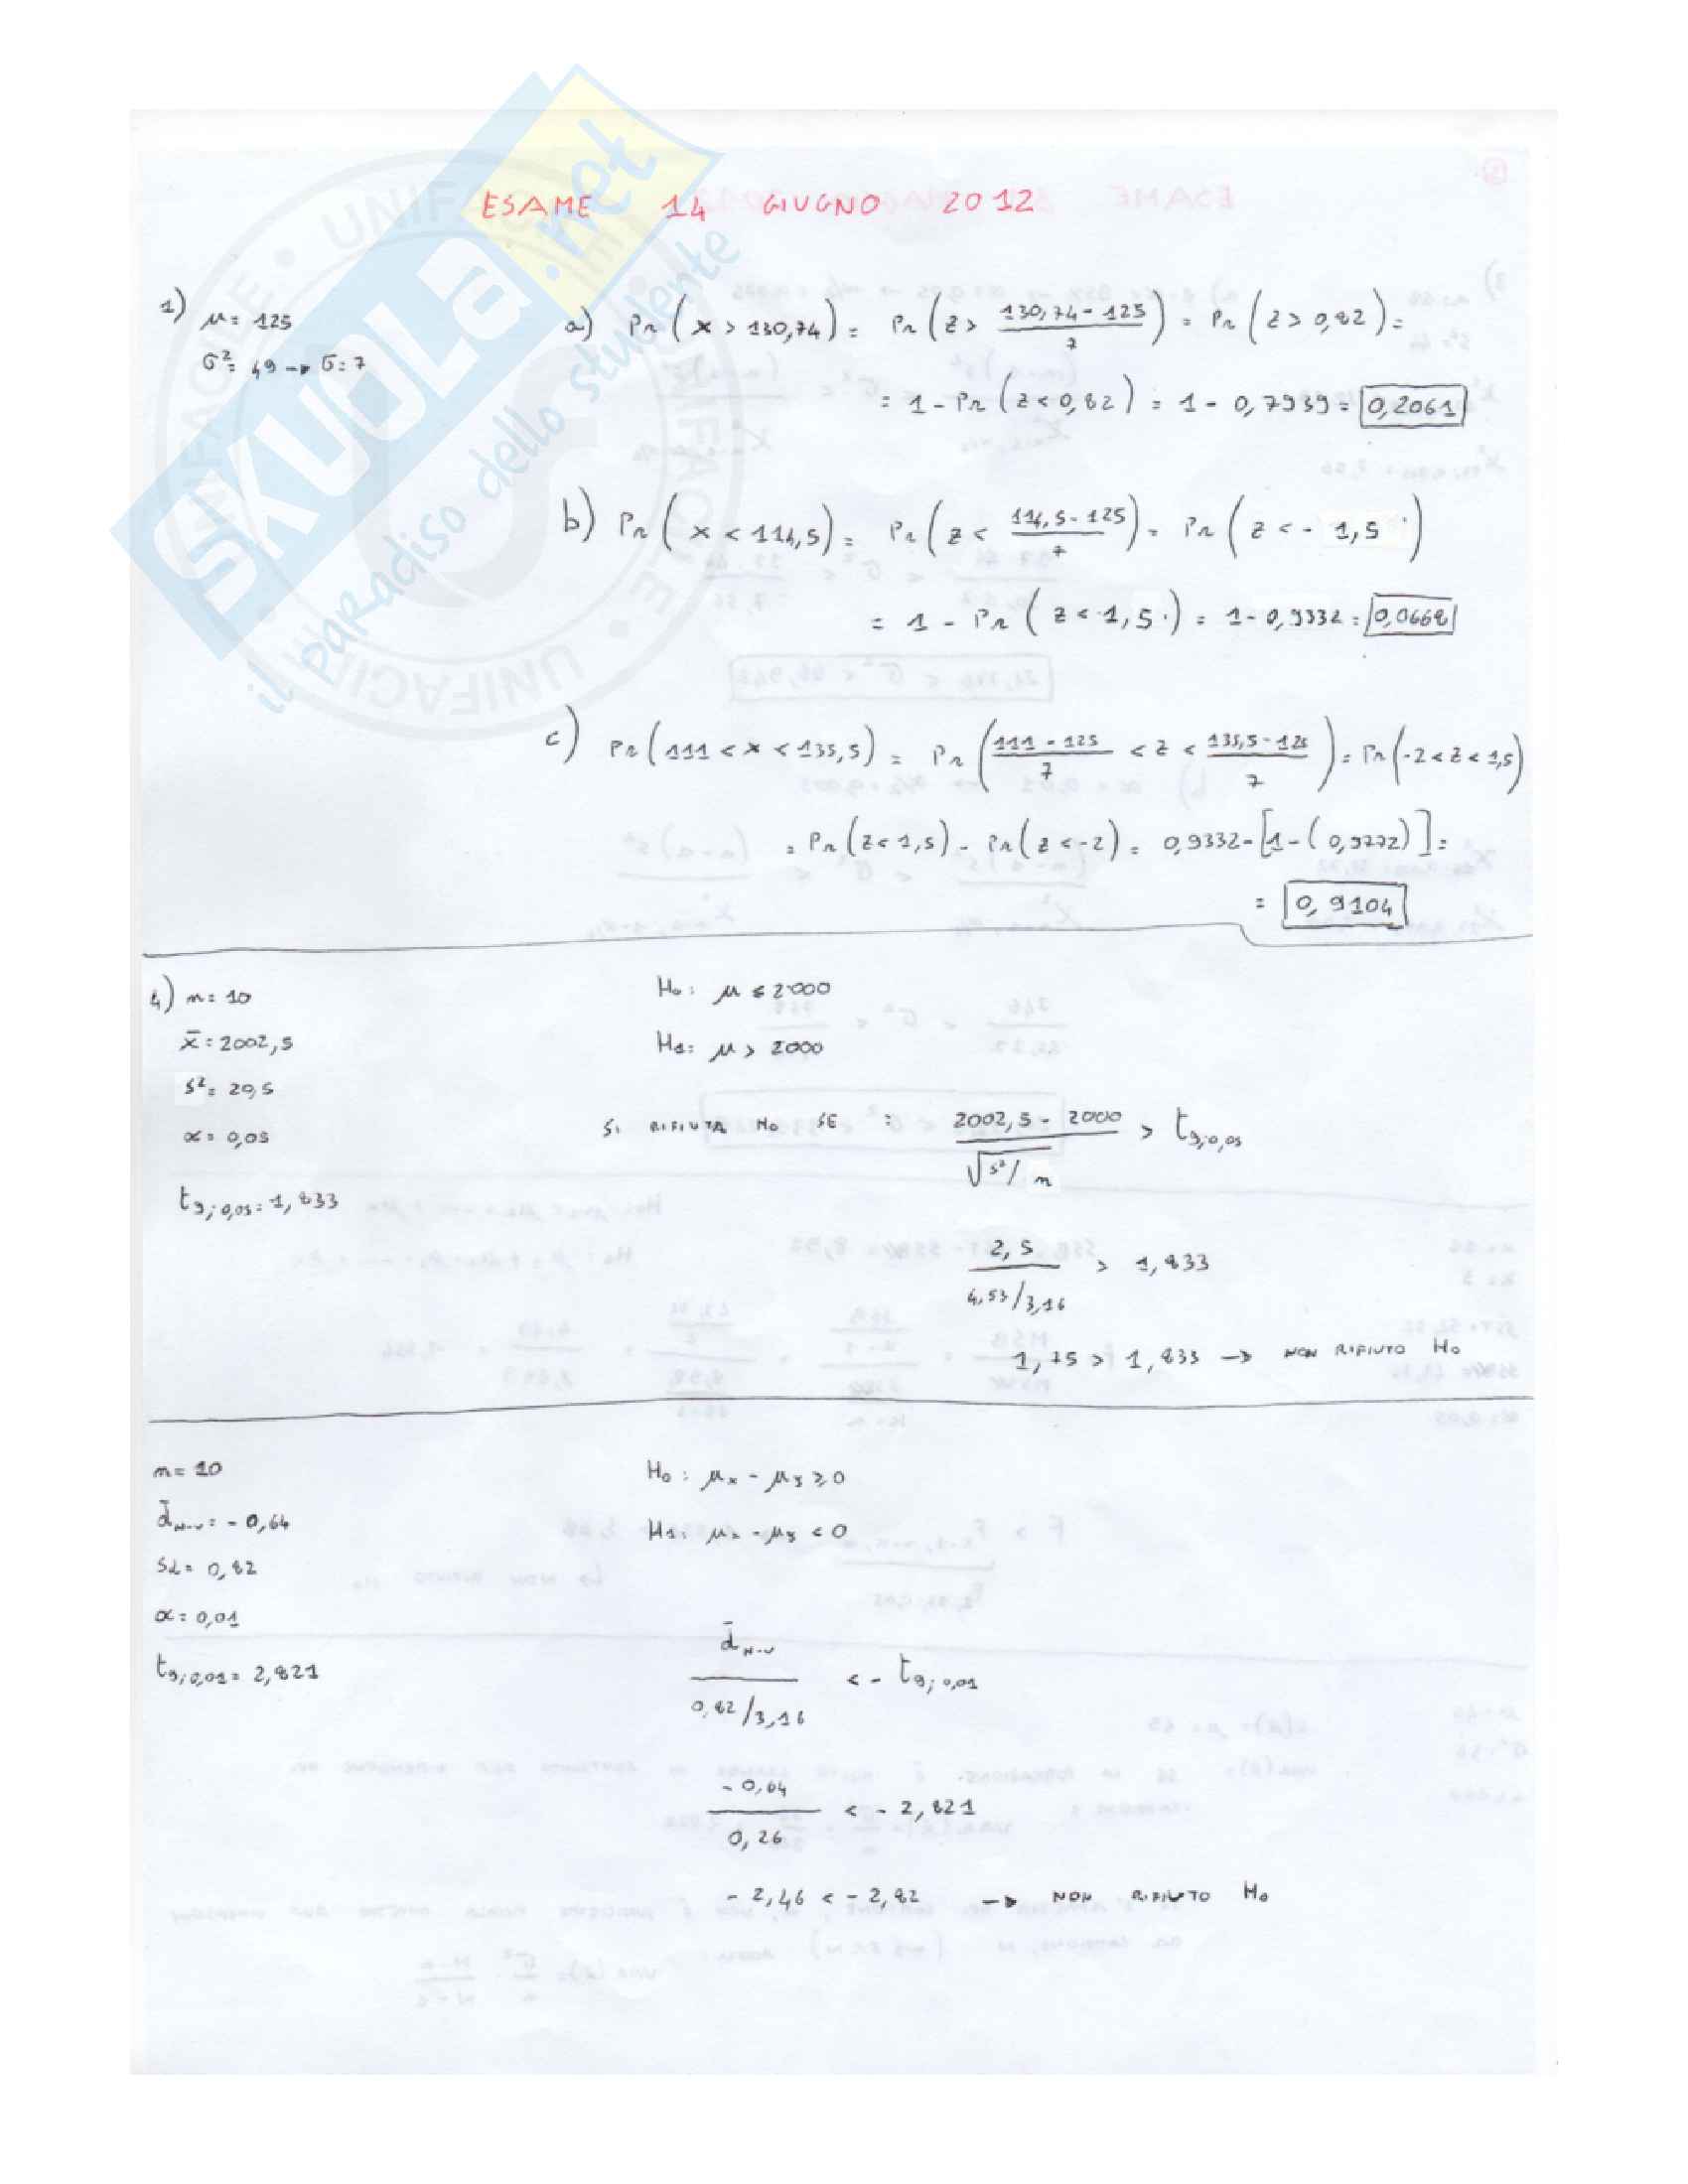 ESAME 14 GIUGNO 2012
SKUOLA.net
il paradiso dello studente
UNIFACILE • UNIFACILE • UNIFACILE
1) μ = 125
σ² = 49 → σ = 7
a) Pr (x > 130,74) = Pr (z > (130,74 - 125)/7) = Pr (z > 0,82) =
= 1 - Pr (z < 0,82) = 1 - 0,7939 = 0,2061
b) Pr (x < 114,5) = Pr (z < (114,5 - 125)/7) = Pr (z < - 1,5)
= 1 - Pr (z < 1,5) = 1 - 0,9332 = 0,0668
c) Pr (111 < x < 135,5) = Pr ((111 - 125)/7 < z < (135,5 - 125)/7) = Pr (-2 < z < 1,5)
= Pr (z < 1,5) - Pr (z < -2) = 0,9332 - [1 - (0,9772)] =
= 0,9104
4) n = 10
x̄ = 2002,5
s² = 20,5
α = 0,05
t9;0,05 = 1,833
H0: μ ≤ 2000
H1: μ > 2000
SI RIFIUTA H0 SE : (2002,5 - 2000)/√s²/n > t9;0,05
2,5/(4,53/3,16) > 1,833
1,75 > 1,833 → NON RIFIUTO H0
n = 10
d̄N-V = - 0,64
sd = 0,82
α = 0,01
t9;0,01 = 2,821
H0: μx - μy ≥ 0
H1: μx - μy < 0
d̄N-V/(0,82/3,16) < - t9;0,01
- 0,64/0,26 < - 2,821
- 2,46 < - 2,82 → NON RIFIUTO H0